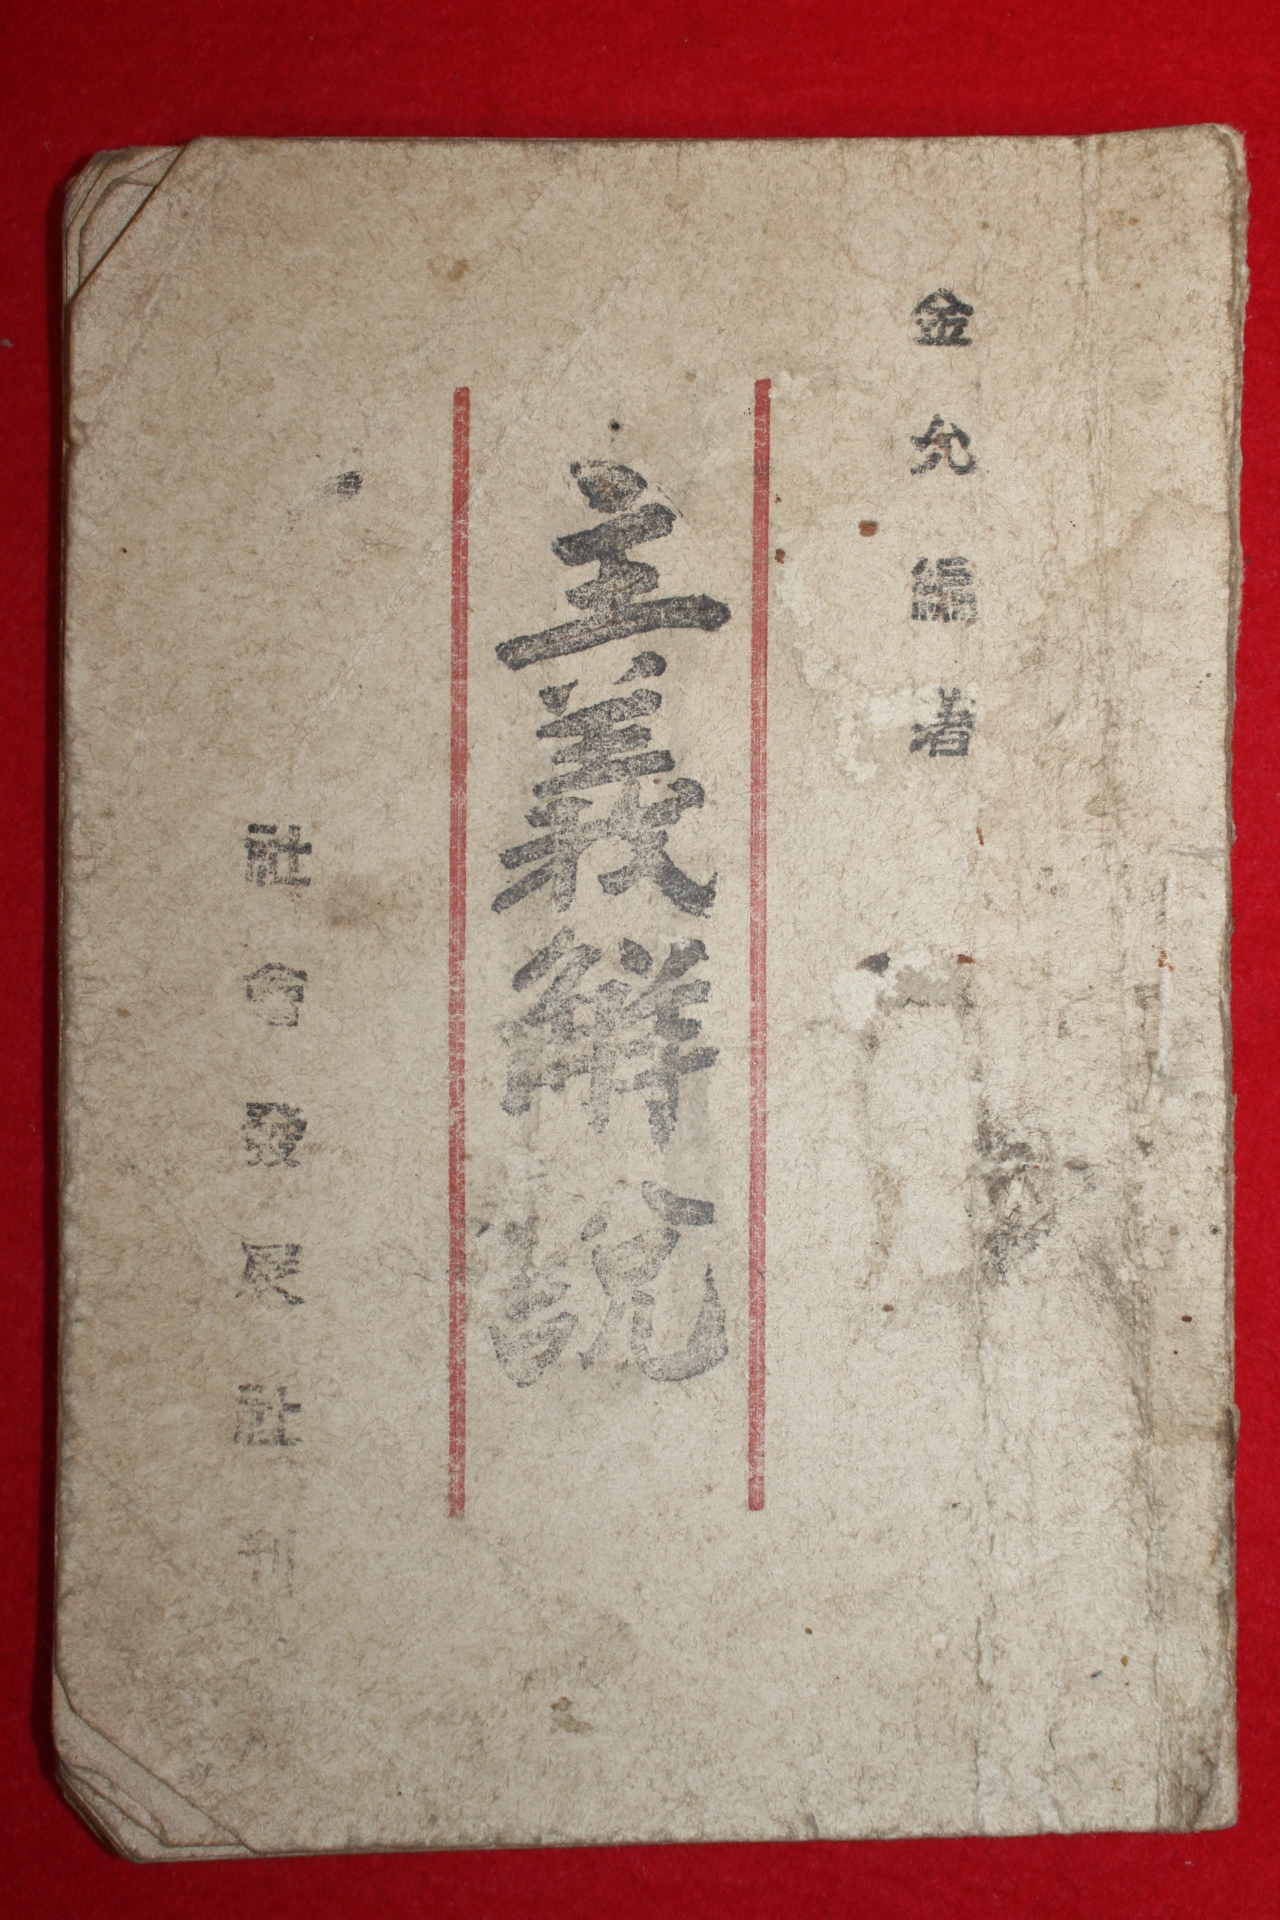 金允編著
主義解說
社會發展社刊